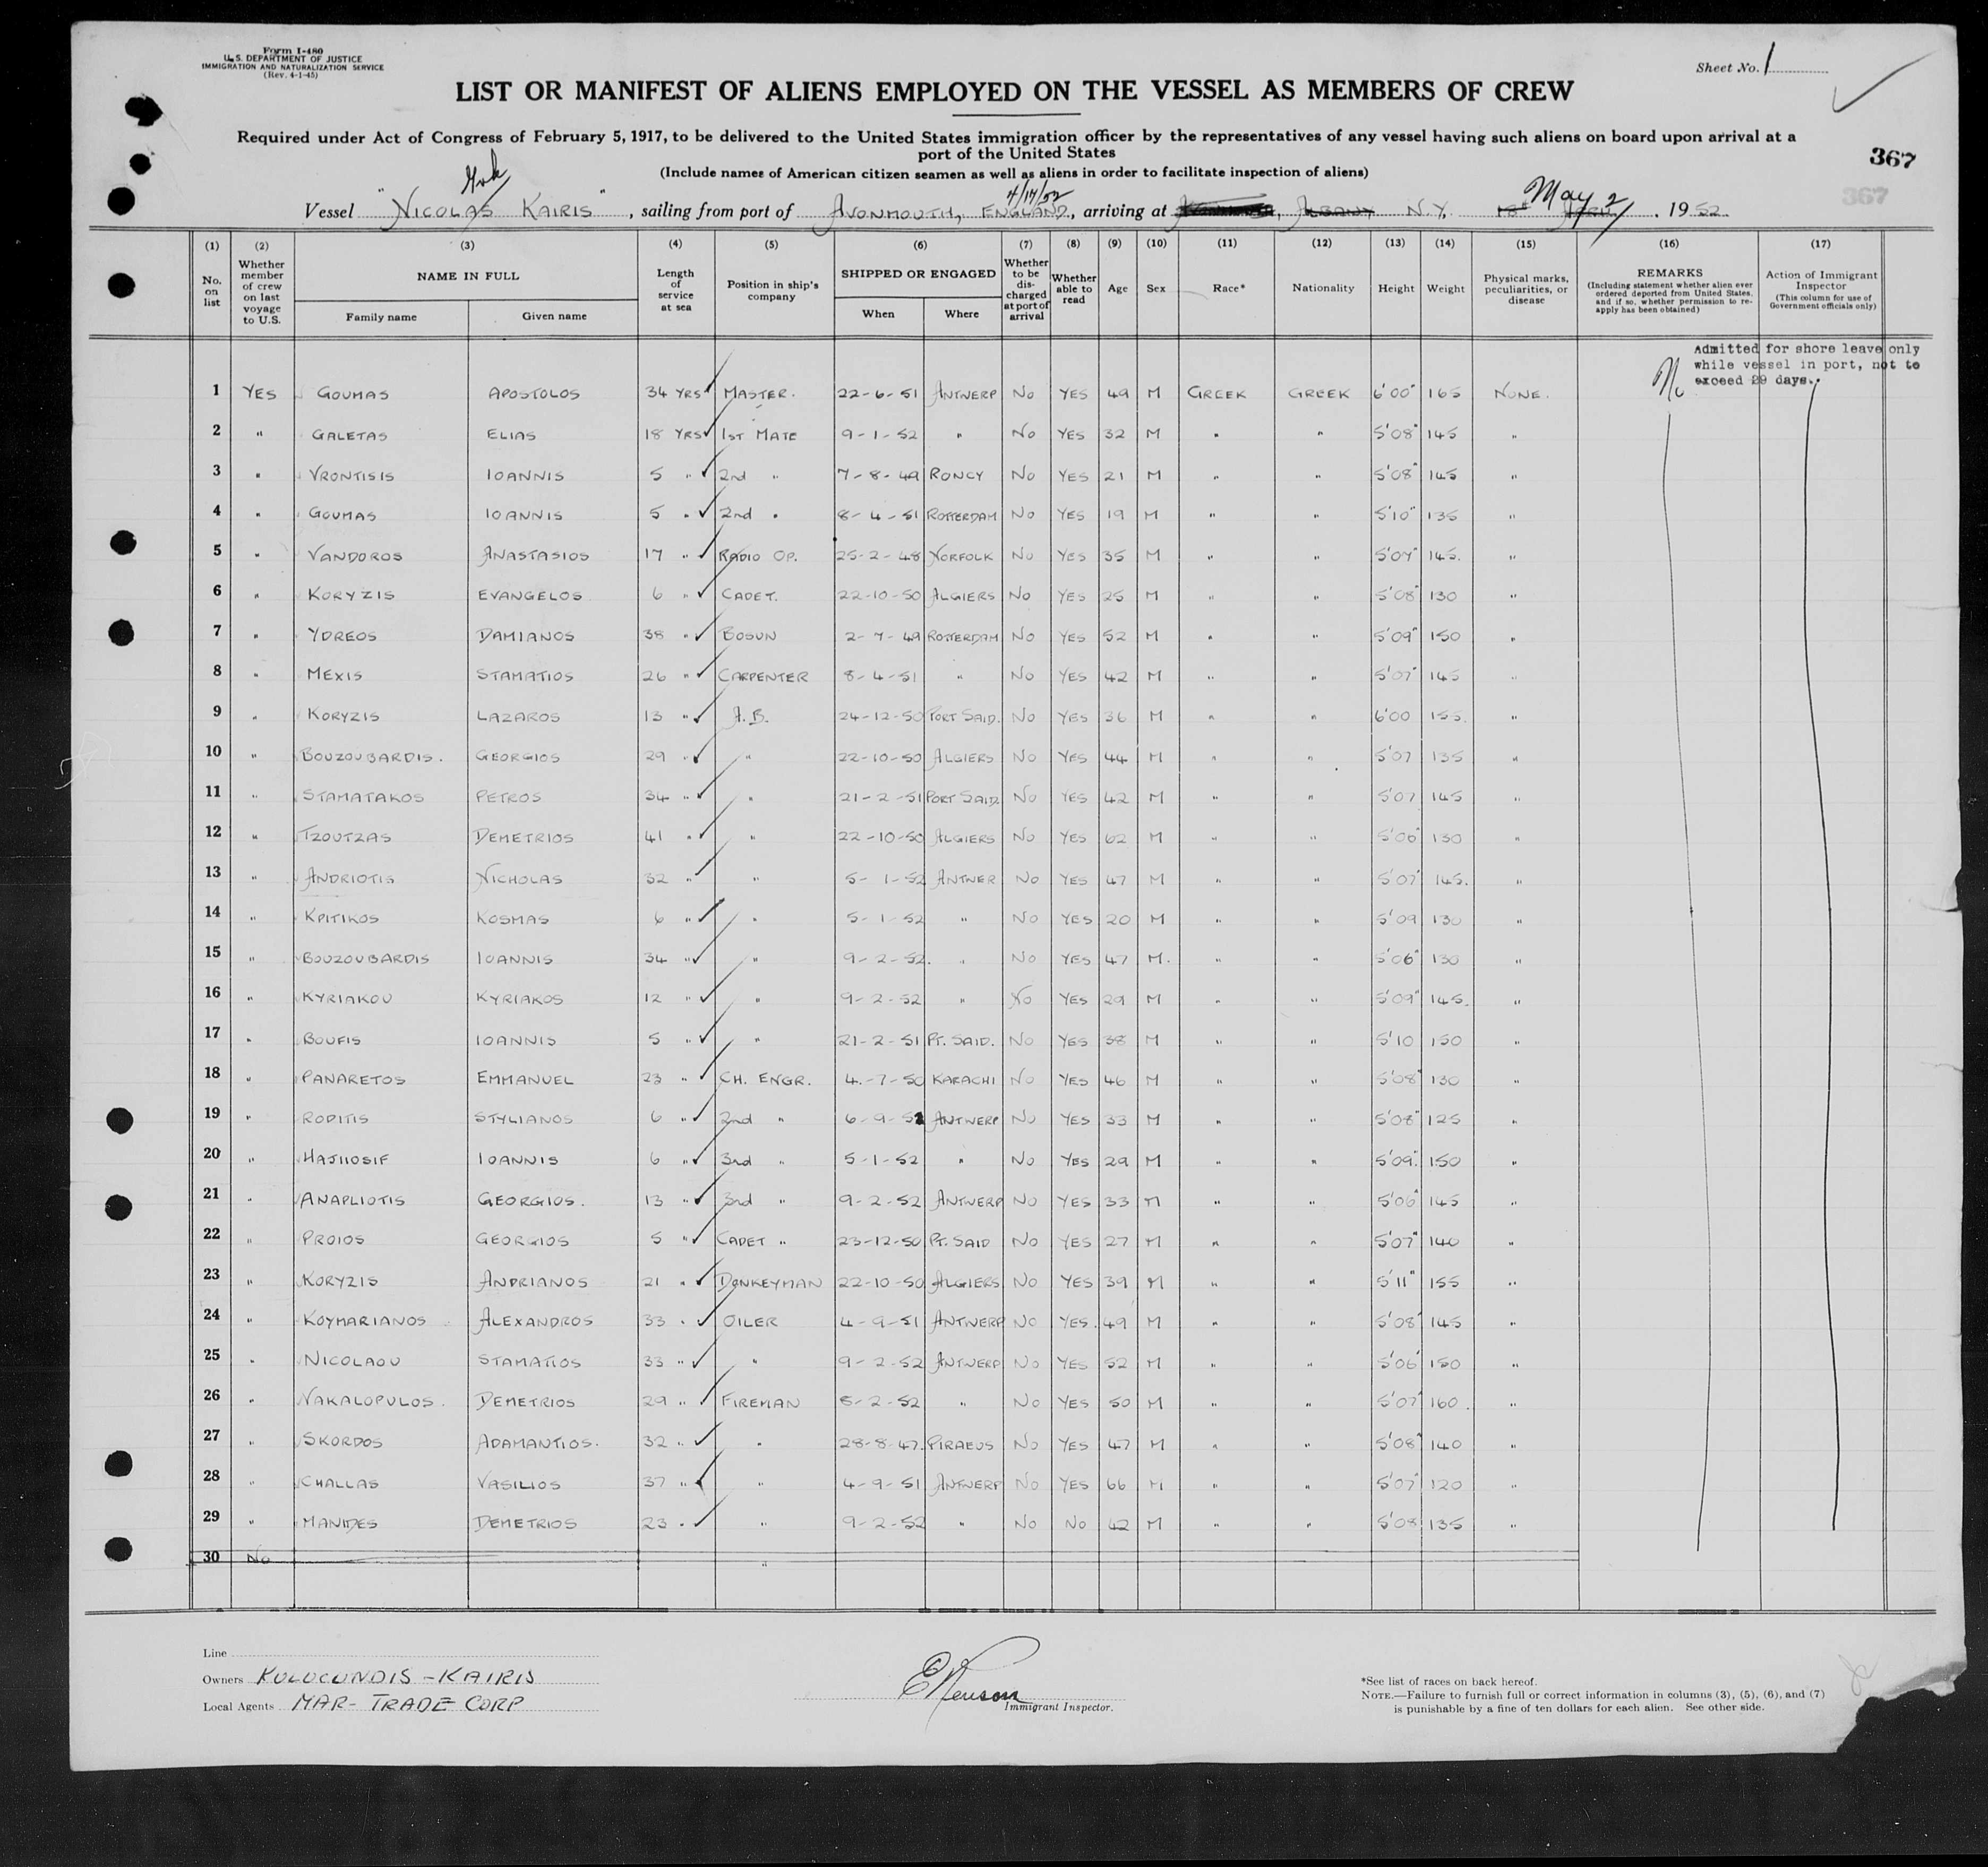 Form I-480
U. S. DEPARTMENT OF JUSTICE
IMMIGRATION AND NATURALIZATION SERVICE
(Rev. 4-1-45)
Sheet No. 1
LIST OR MANIFEST OF ALIENS EMPLOYED ON THE VESSEL AS MEMBERS OF CREW
Required under Act of Congress of February 5, 1917, to be delivered to the United States immigration officer by the representatives of any vessel having such aliens on board upon arrival at a
port of the United States
367
(Include names of American citizen seamen as well as aliens in order to facilitate inspection of aliens)
367
Vessel "NICOLAS KAIRIS", sailing from port of AVONMOUTH, ENGLAND 4/14/52, arriving at ALBANY N.Y. May 2, 1952
(1) (2) (3) (4) (5) (6) (7) (8) (9) (10) (11) (12) (13) (14) (15) (16) (17)
No. on list
Whether member of crew on last voyage to U.S.
NAME IN FULL
Family name
Given name
Length of service at sea
Position in ship's company
SHIPPED OR ENGAGED
When
Where
Whether to be discharged at port of arrival
Whether able to read
Age
Sex
Race*
Nationality
Height
Weight
Physical marks, peculiarities, or disease
REMARKS
(Including statement whether alien ever ordered deported from United States, and if so, whether permission to reapply has been obtained)
Action of Immigrant Inspector
(This column for use of Government officials only)
Admitted for shore leave only
while vessel in port, not to
exceed 29 days.
1 YES GOUMAS APOSTOLOS 34 YRS MASTER. 22-6-51 ANTWERP No YES 49 M GREEK GREEK 6'00" 165 NONE. No
2 " GALETAS ELIAS 18 YRS 1ST MATE 9-1-52 " No YES 32 M " " 5'08" 145 "
3 " VRONTISIS IOANNIS 5 " 2nd " 7-8-49 RONCY No YES 21 M " " 5'08" 145 "
4 " GOUMAS IOANNIS 5 " 2nd " 8-4-51 ROTTERDAM No YES 19 M " " 5'10" 135 "
5 " VANDOROS ANASTASIOS 17 " RADIO OP. 25-2-48 NORFOLK No YES 35 M " " 5'07" 145. "
6 " KORYZIS EVANGELOS 6 " CADET. 22-10-50 ALGIERS No YES 25 M " " 5'08" 130 "
7 " YDREOS DAMIANOS 38 " BOSUN 2-7-49 ROTTERDAM No YES 52 M " " 5'09" 150 "
8 " MEXIS STAMATIOS 26 " CARPENTER 8-4-51 " No YES 42 M " " 5'07" 145 "
9 " KORYZIS LAZAROS 13 " A.B. 24-12-50 PORT SAID. No YES 36 M " " 6'00 155. "
10 " BOUZOUBARDIS. GEORGIOS 29 " " 22-10-50 ALGIERS No YES 44 M " " 5'07 135 "
11 " STAMATAKOS PETROS 34 " " 21-2-51 PORT SAID. No YES 42 M " " 5'07 145 "
12 " TZOUTZAS DEMETRIOS 41 " " 22-10-50 ALGIERS No YES 62 M " " 5'06" 130 "
13 " ANDRIOTIS NICHOLAS 32 " " 5-1-52 ANTWER No YES 47 M " " 5'07" 145. "
14 " KPITIKOS KOSMAS 6 " " 5-1-52 " No YES 20 M " " 5'09 130 "
15 " BOUZOUBARDIS IOANNIS 34 " " 9-2-52. " No YES 47 M. " " 5'06" 130 "
16 " KYRIAKOU KYRIAKOS 12 " " 9-2-52 " No YES 29 M " " 5'09" 145. "
17 " BOUFIS IOANNIS 5 " " 21-2-51 PT. SAID. No YES 38 M " " 5'10 150 "
18 " PANARETOS EMMANUEL 23 " CH. ENGR. 4.-7-50 KARACHI No YES 46 M " " 5'08" 130 "
19 " RODITIS STYLIANOS 6 " 2nd " 6-9-51 ANTWERP No YES 33 M " " 5'08" 125 "
20 " HAJIIOSIF IOANNIS 6 " 3rd " 5-1-52 " No YES 29 M " " 5'09" 150 "
21 " ANAPLIOTIS GEORGIOS. 13 " 3rd " 9-2-52 ANTWERP No YES 33 M " " 5'06" 145 "
22 " PROIOS GEORGIOS 5 " CADET " 23-12-50 PT. SAID No YES 27 M " " 5'07" 140 "
23 " KORYZIS ANDRIANOS 21 " DONKEYMAN 22-10-50 ALGIERS No YES 39 M " " 5'11" 155 "
24 " KOYMARIANOS ALEXANDROS 33 " OILER 4-9-51 ANTWERP No YES. 49 M " " 5'08" 145 "
25 " NICOLAOU STAMATIOS 33 " " 9-2-52 ANTWERP No YES 52 M " " 5'06" 150 "
26 " VAKALOPULOS. DEMETRIOS 29 " FIREMAN 8-2-52 " No YES 50 M " " 5'07" 160. "
27 " SKORDOS ADAMANTIOS. 32 " " 28-8-47. PIRAEUS No YES 47 M " " 5'08" 140 "
28 " CHALLAS VASILIOS 37 " " 4-9-51 ANTWERP No YES 66 M " " 5'07" 120 "
29 " MANIDES DEMETRIOS 23 " " 9-2-52 " No No 42 M " " 5'08 135 "
30 No "
Line
Owners KULUCUNDIS - KAIRIS
Local Agents MAR-TRADE CORP
Immigrant Inspector.
*See list of races on back hereof.
NOTE.—Failure to furnish full or correct information in columns (3), (5), (6), and (7)
is punishable by a fine of ten dollars for each alien. See other side.